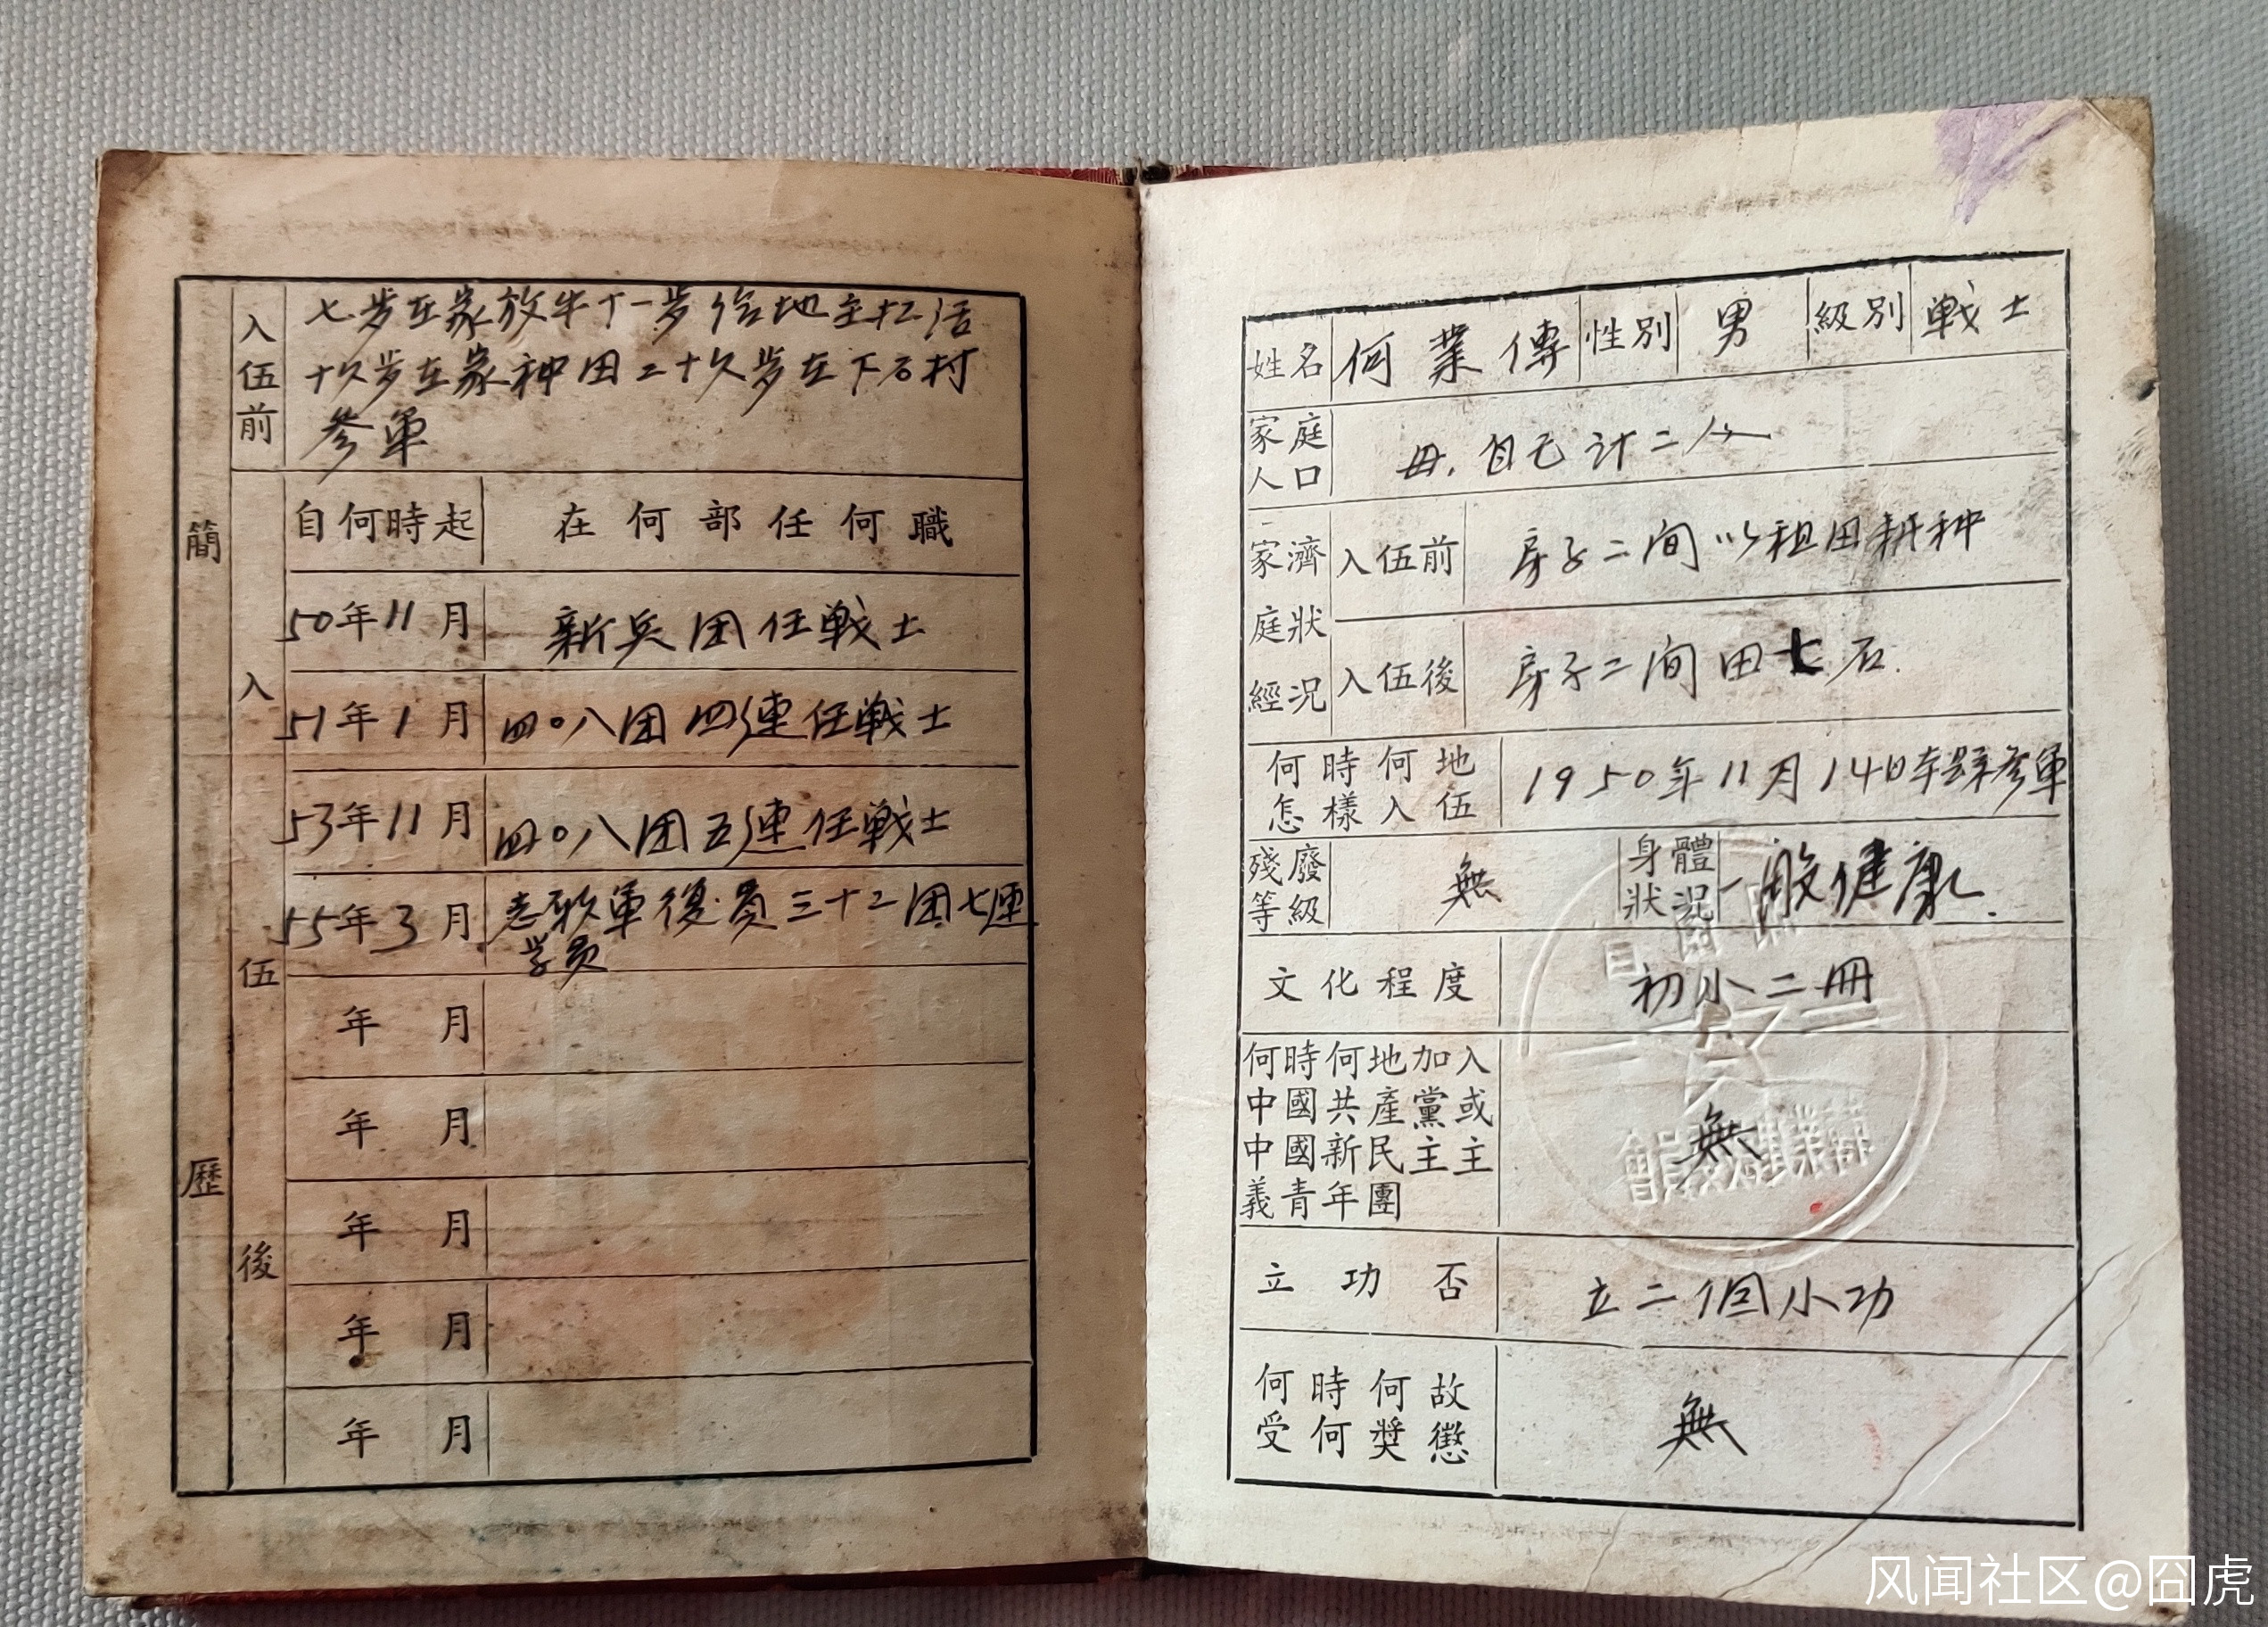 入伍前
七岁在家放牛十一岁给地主打活
十久岁在家种田二十久岁在下石村
参軍
簡歷
入伍後
自何時起 在何部任何職
50年11月 新兵团任戰士
51年1月 四〇八团四連任戰士
53年11月 四〇八团五連任戰士
55年3月 志愿軍復員三十二团七連
学员
年 月
年 月
年 月
年 月
年 月
姓名 何業傳 性別 男 級別 戰士
家庭
人口
母.自己计二人
家庭經濟狀況
入伍前 房子二间以租田耕种
入伍後 房子二间田七石.
何時何地
怎樣入伍
1950年11月14日本县参軍
殘廢
等級
無
身體
狀況
一般健康.
文化程度 初小二冊
何時何地加入
中國共產黨或
中國新民主主
義青年團
無
立功否 立二個小功
何時何故
受何獎懲
無
風闻社区@囧虎